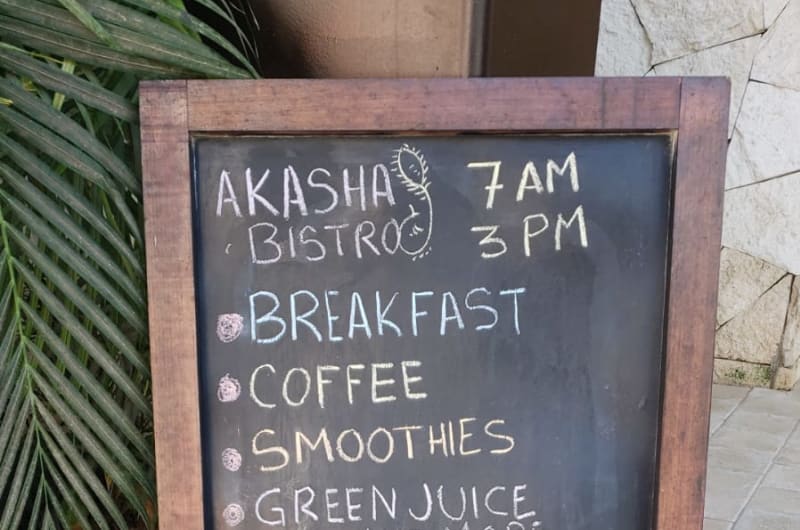 AKASHA 7 AM
BISTRO 3 PM
BREAKFAST
COFFEE
SMOOTHIES
GREEN JUICE